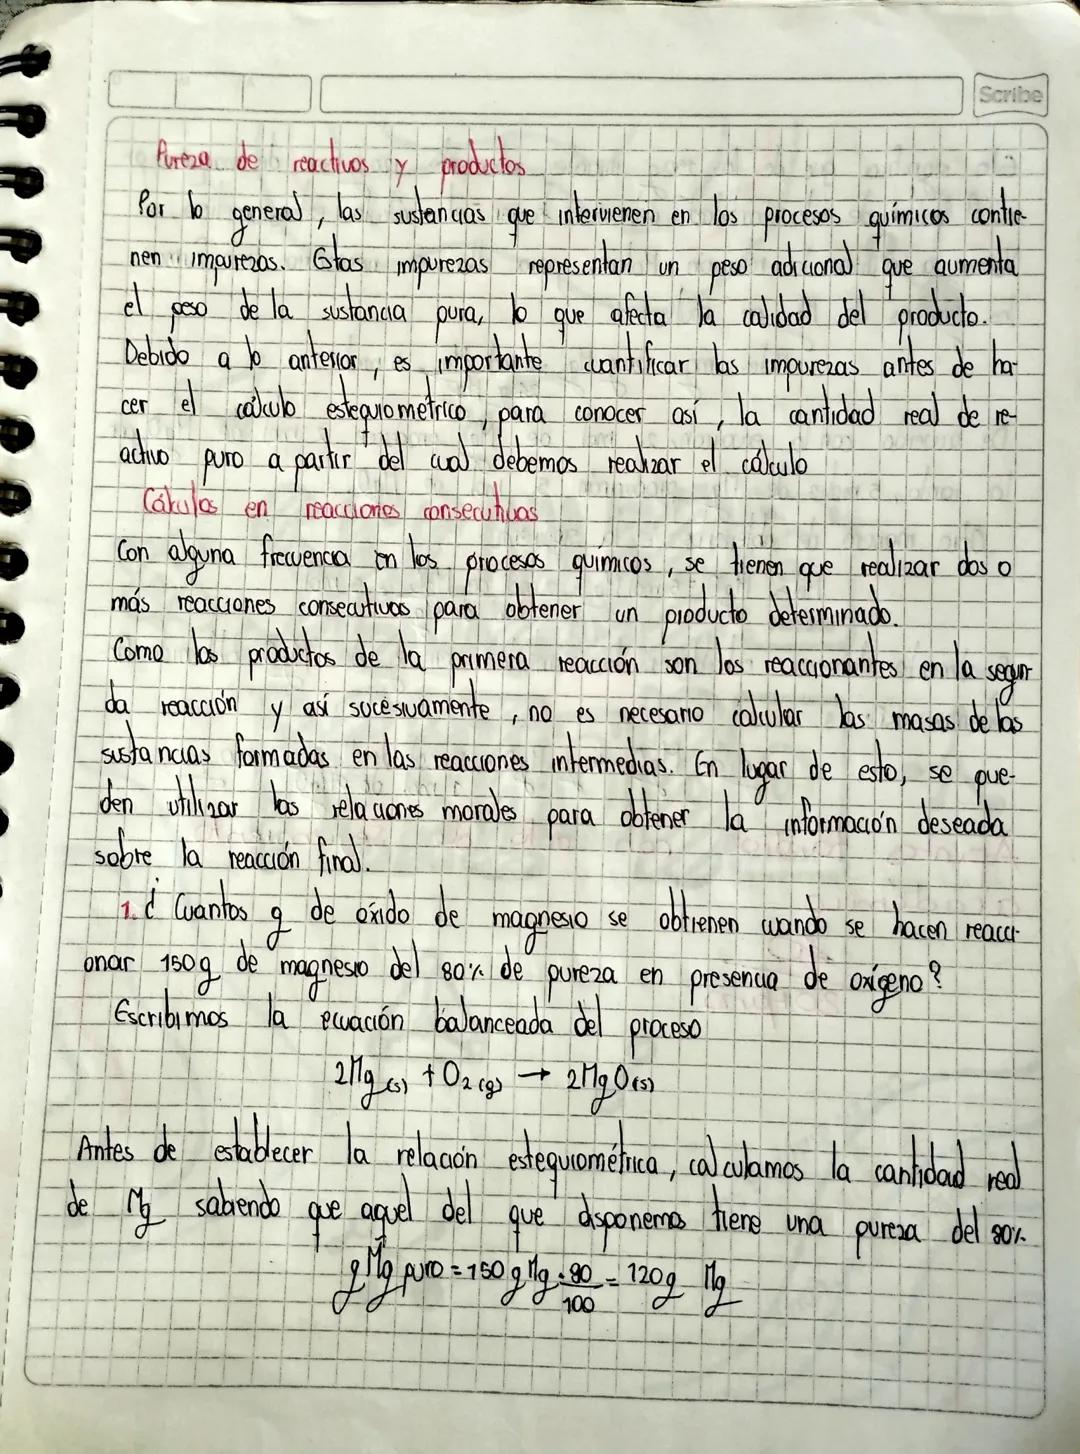 Scribe
Pureza de reactivos y productos
Por lo general, las sustancias que intervienen en los procesos químicos contie-
nen impurezas. Estas impurezas representan un peso adicional que aumenta
el peso de la sustancia pura, lo que afecta la calidad del producto.
Debido a lo anterior, es importante cuantificar las impurezas antes de ha-
cer el cálculo estequiometrico, para conocer así, la cantidad real de re-
activo puro a partir del cual debemos realizar el cálculo
Cálculos en reacciones consecutivas
Con alguna frecuencia en los procesos químicos, se tienen que realizar dos o
más reacciones consecutivas para obtener un producto determinado.
Como los productos de la primera reacción son los reaccionantes en la segun-
da reacción y así sucesivamente, no es necesario calcular las masas de las
sustancias formadas en las reacciones intermedias. En lugar de esto, se pue-
den utilizar las relaciones morales para obtener la información deseada
sobre la reacción final.
1. ¿Cuantos g de óxido de magnesio se obtienen cuando se hacen reacci-
onar 150g de magnesio del 80% de pureza en presencia de oxígeno?
Escribimos la ecuación balanceada del proceso
2Mg(s) + O2(g) → 2MgO(s)
Antes de establecer la relación estequiométrica, calculamos la cantidad real
de Mg sabiendo que aquel del que disponemos tiene una pureza del 80%
g Mg puro = 150 g Mg · 80/100 = 120g Mg